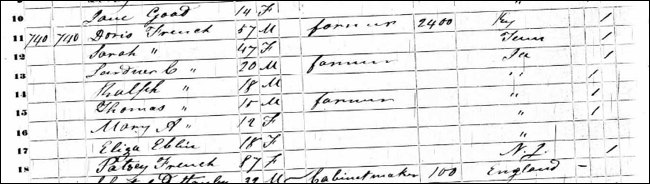 10 Jane Good 14 F 1
11 740 740 Doris French 57 M farmer 2400 Ky 1
12 Sarah " 47 F Tenn 1
13 Gardner C " 20 M farmer Ia
14 Ralph " 18 M " 1
15 Thomas " 15 M farmer " 1
16 Mary A " 12 F "
17 Eliza Eblin 18 F "
18 Patsey French 87 F N. J. 1
39 M Cabinetmaker 100 England